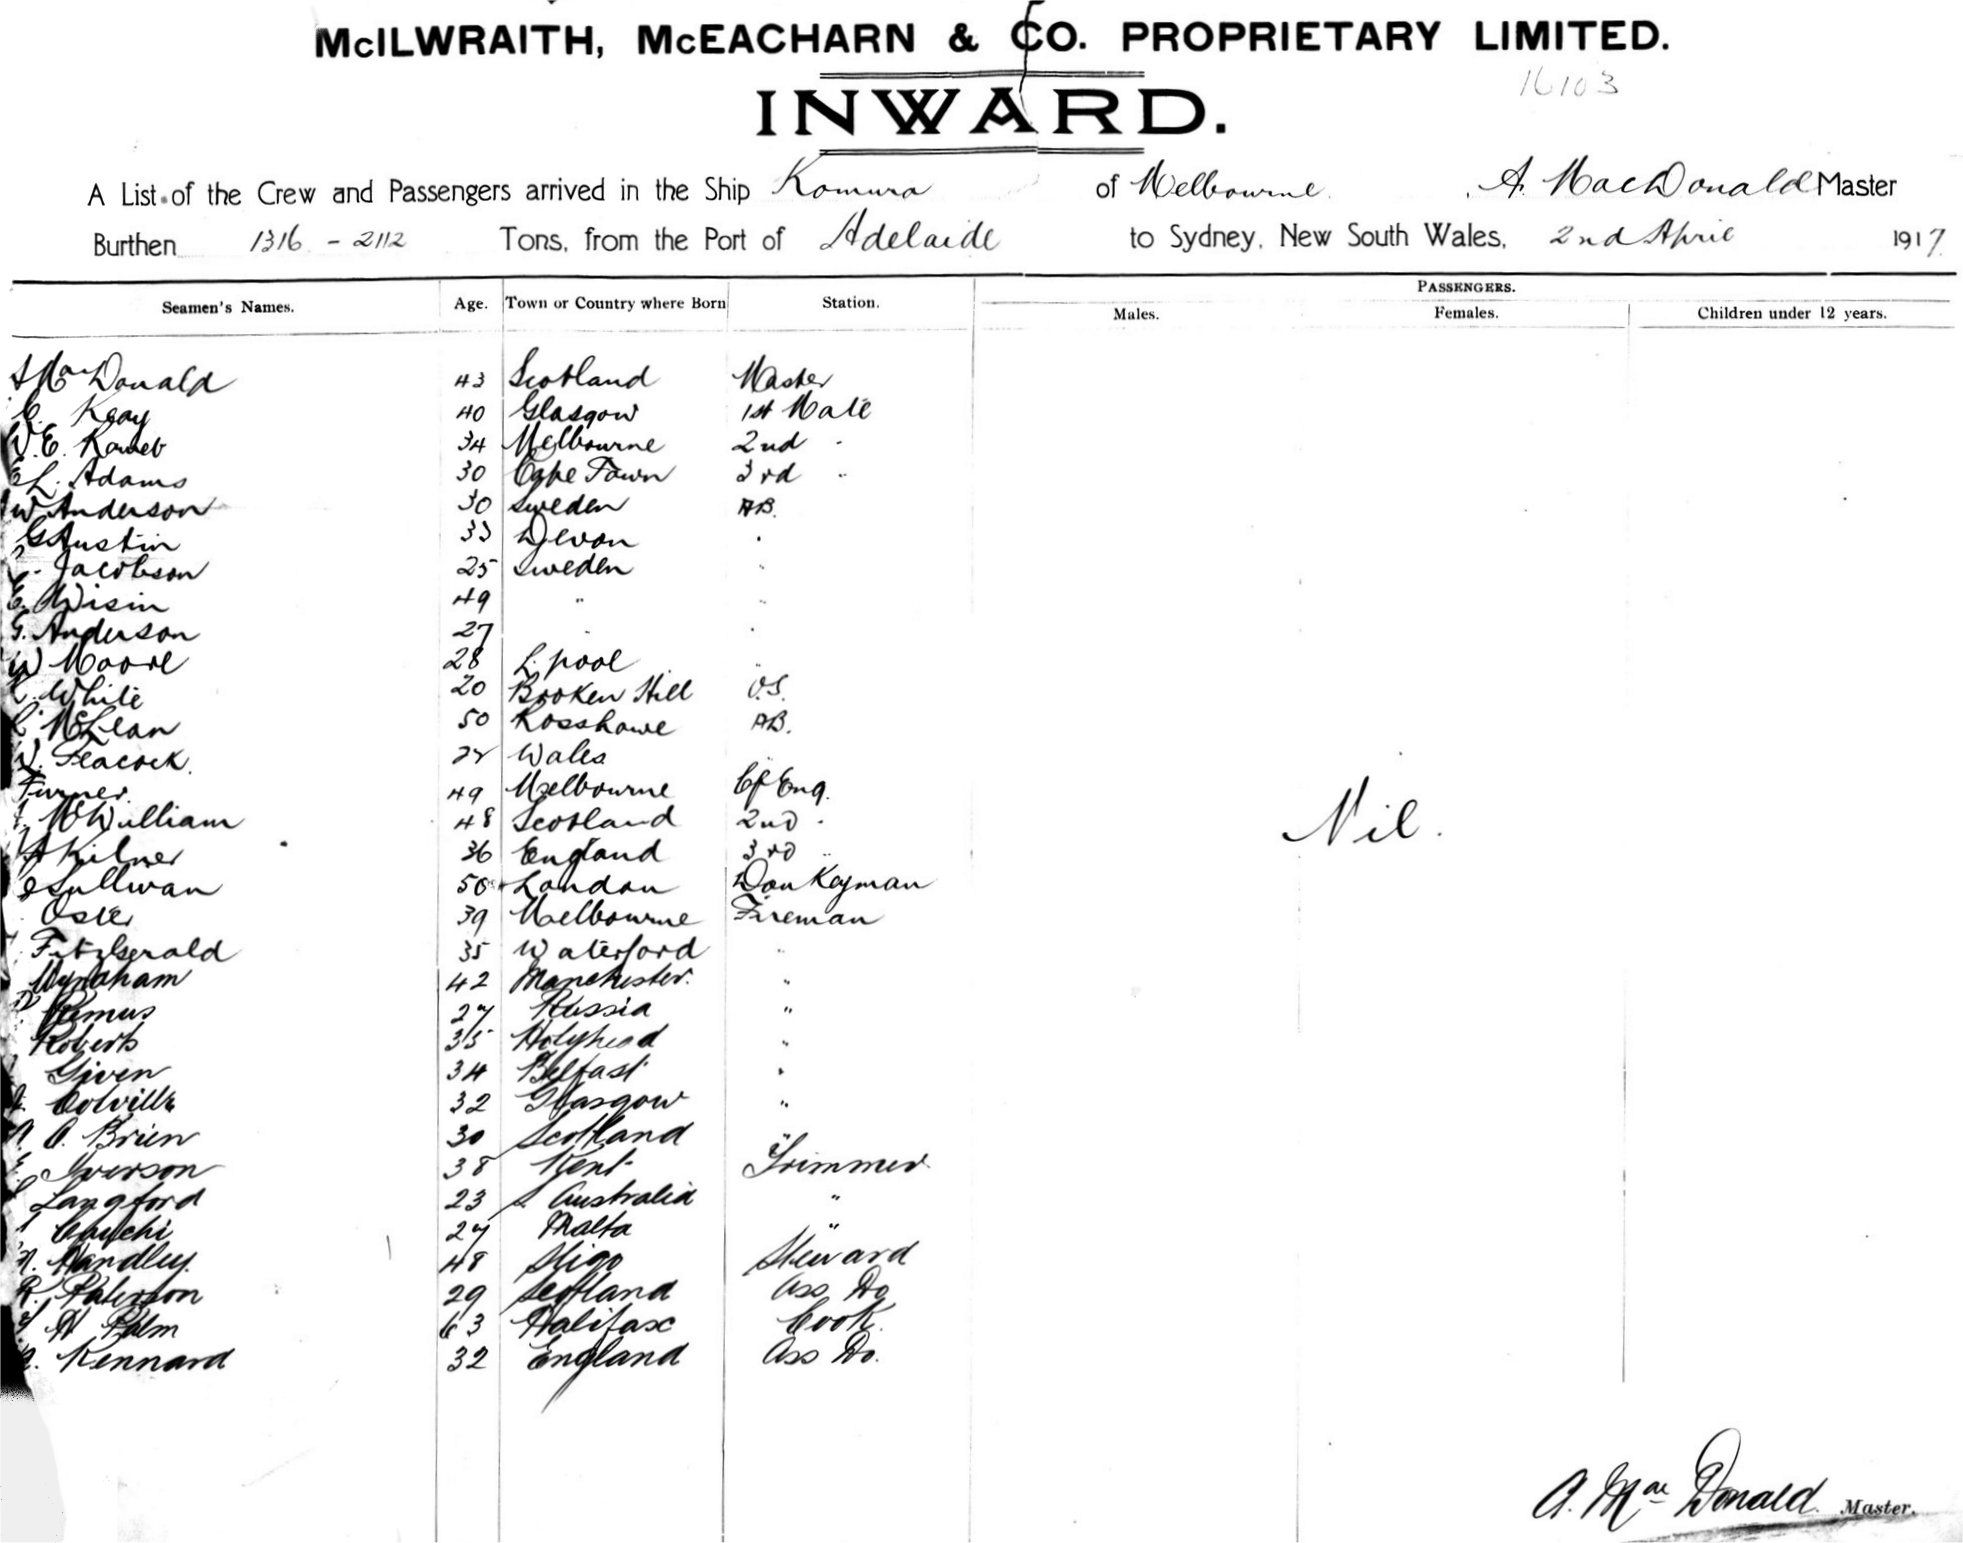 McILWRAITH, McEACHARN & CO. PROPRIETARY LIMITED.
16103
INWARD.
A List of the Crew and Passengers arrived in the Ship Komura of Melbourne. A. MacDonald Master
Burthen 1316 - 2112 Tons, from the Port of Adelaide to Sydney, New South Wales, 2nd April 1917.
PASSENGERS.
Seamen's Names. Age. Town or Country where Born Station. Males. Females. Children under 12 years.
A MacDonald 43 Scotland Master
Keay 40 Glasgow 1st Mate
E. 34 Melbourne 2nd "
L. Adams 30 Cape Town 3rd "
W Anderson 30 Sweden AB.
G Austin 33 Devon "
Jacobson 25 Sweden "
E. 49 " "
G. Anderson 27 " "
W Moore 28 L.pool "
White 20 Broken Hill O.S.
McLean 50 AB.
Peacock. Wales
Turner. 49 Melbourne Cf Eng.
McWilliam 48 Scotland 2nd "
A Kilner 36 England 3rd "
Sullivan 50 London Donkeyman
Oster 39 Melbourne Fireman
Fitzgerald 35 Waterford "
Wyndham 42 Manchester. "
27 Russia "
Roberts 35 Holyhead "
Given 34 Belfast "
Colville 32 Glasgow "
O. Brien 30 Scotland "
Iverson 38 Kent Trimmer
Langford 23 S. Australia "
27 Malta "
Handley. 48 Sligo Steward
R. Paterson 29 Scotland Ass Do
H Palm 63 Halifax Cook.
Kennard 32 England Ass Do.
Nil.
A. MacDonald Master.